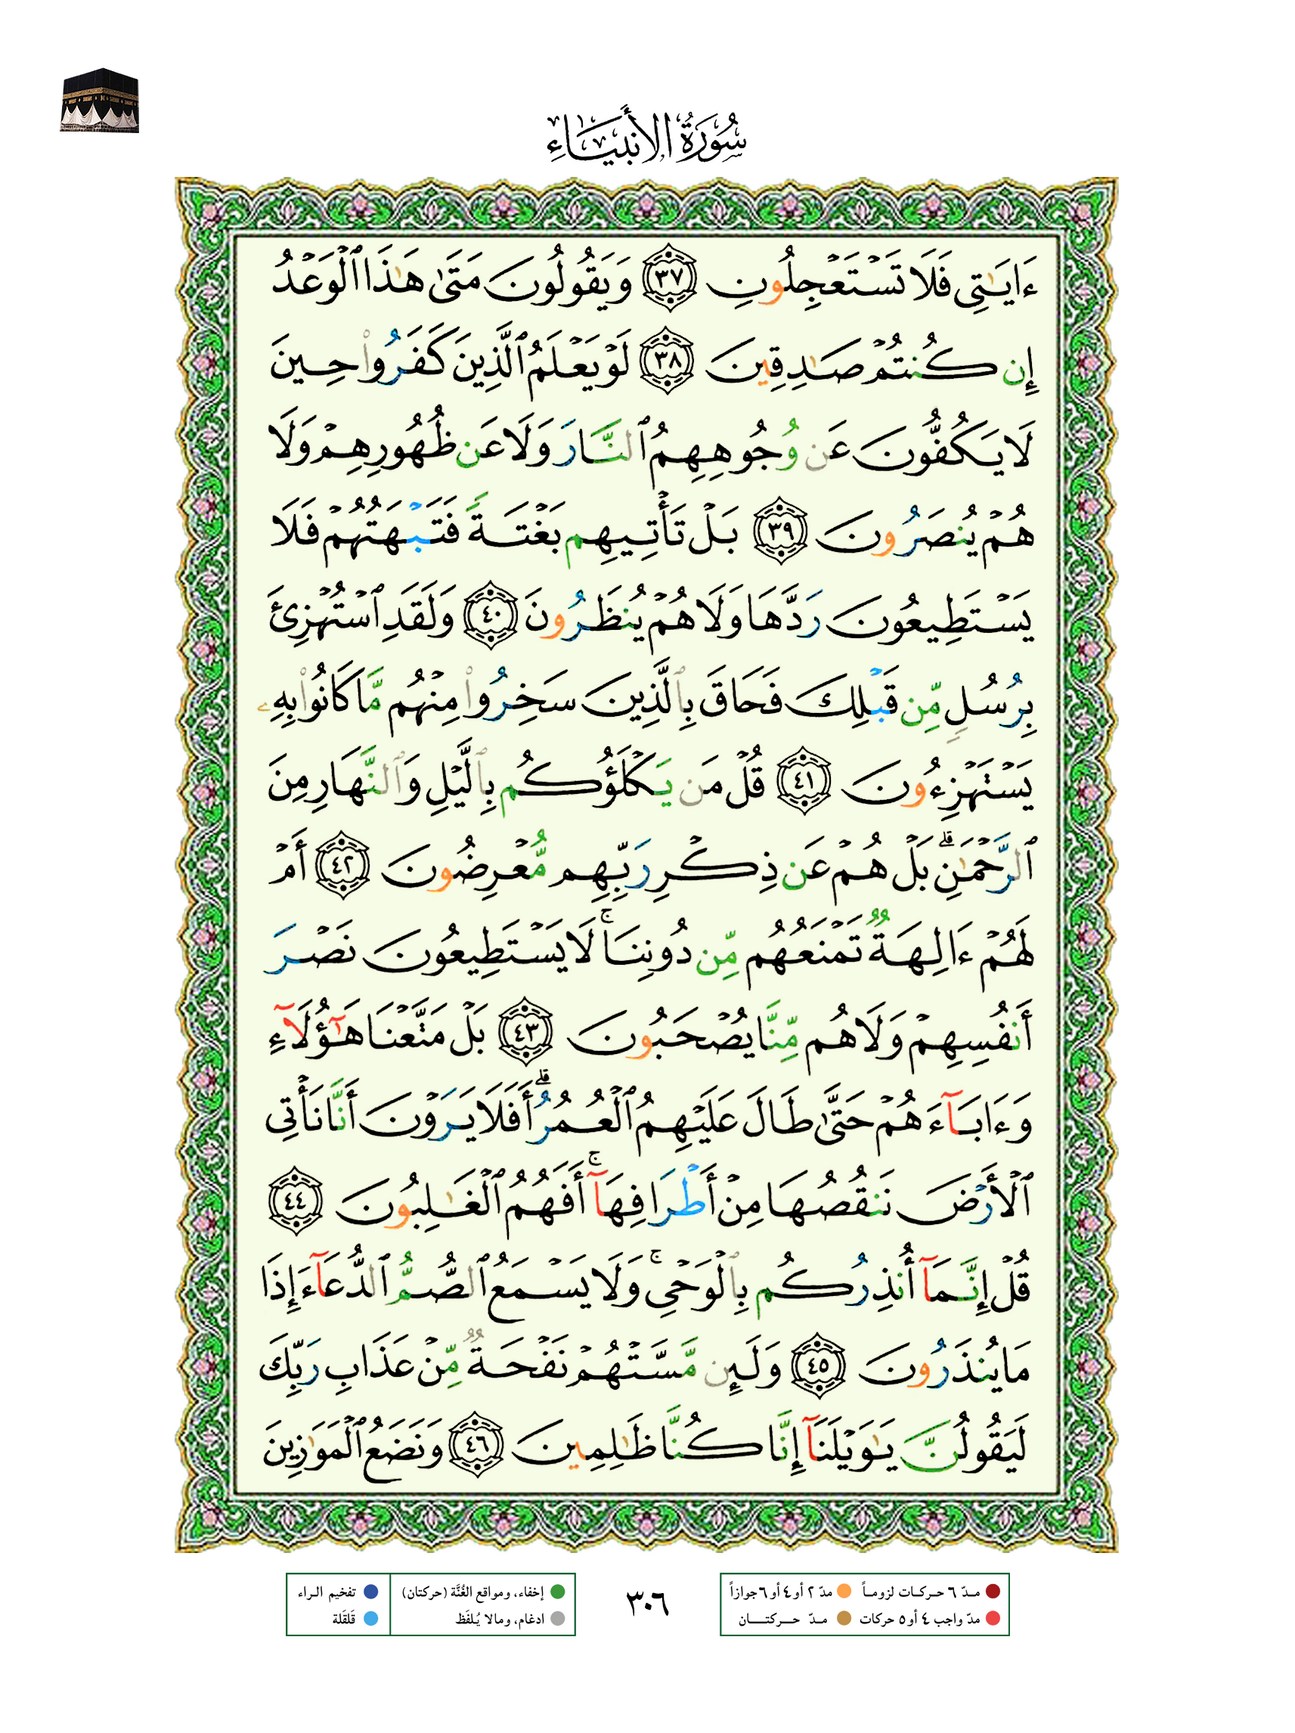 سُورَةُ الأَنبِيَاء
ءَايَٰتِي فَلَا تَسْتَعْجِلُونِ ٣٧ وَيَقُولُونَ مَتَىٰ هَٰذَا ٱلْوَعْدُ
إِن كُنتُمْ صَٰدِقِينَ ٣٨ لَوْ يَعْلَمُ ٱلَّذِينَ كَفَرُوا۟ حِينَ
لَا يَكُفُّونَ عَن وُجُوهِهِمُ ٱلنَّارَ وَلَا عَن ظُهُورِهِمْ وَلَا
هُمْ يُنصَرُونَ ٣٩ بَلْ تَأْتِيهِم بَغْتَةً فَتَبْهَتُهُمْ فَلَا
يَسْتَطِيعُونَ رَدَّهَا وَلَا هُمْ يُنظَرُونَ ٤٠ وَلَقَدِ ٱسْتُهْزِئَ
بِرُسُلٍ مِّن قَبْلِكَ فَحَاقَ بِٱلَّذِينَ سَخِرُوا۟ مِنْهُم مَّا كَانُوا۟ بِهِۦ
يَسْتَهْزِءُونَ ٤١ قُلْ مَن يَكْلَؤُكُم بِٱلَّيْلِ وَٱلنَّهَارِ مِنَ
ٱلرَّحْمَٰنِ ۗ بَلْ هُمْ عَن ذِكْرِ رَبِّهِم مُّعْرِضُونَ ٤٢ أَمْ
لَهُمْ ءَالِهَةٌ تَمْنَعُهُم مِّن دُونِنَا ۚ لَا يَسْتَطِيعُونَ نَصْرَ
أَنفُسِهِمْ وَلَا هُم مِّنَّا يُصْحَبُونَ ٤٣ بَلْ مَتَّعْنَا هَٰٓؤُلَآءِ
وَءَابَآءَهُمْ حَتَّىٰ طَالَ عَلَيْهِمُ ٱلْعُمُرُ ۗ أَفَلَا يَرَوْنَ أَنَّا نَأْتِى
ٱلْأَرْضَ نَنقُصُهَا مِنْ أَطْرَافِهَآ ۚ أَفَهُمُ ٱلْغَٰلِبُونَ ٤٤
قُلْ إِنَّمَآ أُنذِرُكُم بِٱلْوَحْىِ ۚ وَلَا يَسْمَعُ ٱلصُّمُّ ٱلدُّعَآءَ إِذَا
مَا يُنذَرُونَ ٤٥ وَلَئِن مَّسَّتْهُمْ نَفْحَةٌ مِّنْ عَذَابِ رَبِّكَ
لَيَقُولُنَّ يَٰوَيْلَنَآ إِنَّا كُنَّا ظَٰلِمِينَ ٤٦ وَنَضَعُ ٱلْمَوَٰزِينَ
مـدّ ٦ حـركـات لزومـاً مدّ ٢ أو ٤ أو ٦ جوازاً
مدّ واجب ٤ أو ٥ حركات مـدّ حـــركتـــــان
٣٠٦
إخفاء، ومواقع الغُنَّة (حركتان) تفخيم الـراء
ادغام، ومالا يُـلفَظ قَلقَلة